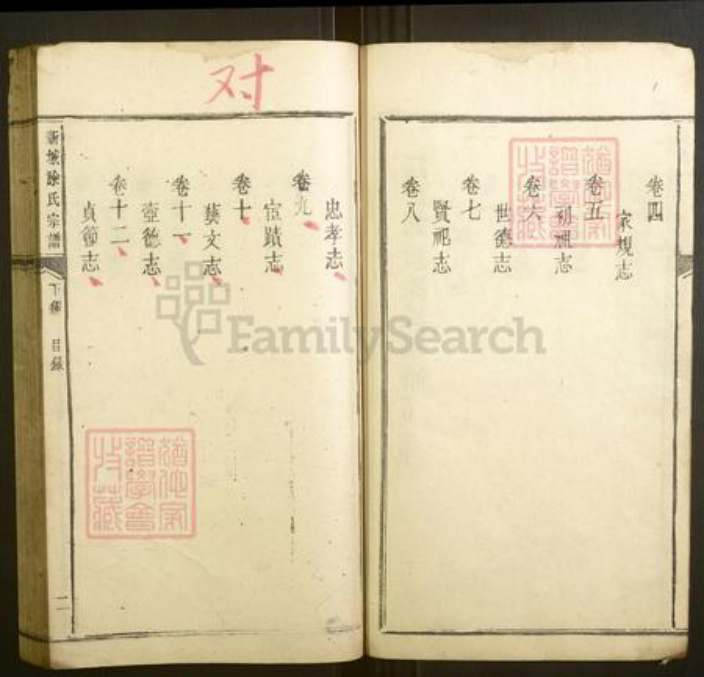 卷四
家規志
卷五
祠祀志
卷六
世德志
卷七
賢祀志
卷八
忠孝志
卷九
宦蹟志
卷十
藝文志
卷十一
壼德志
卷十二
貞節志
对
氏宗譜
目錄
二
FamilySearch